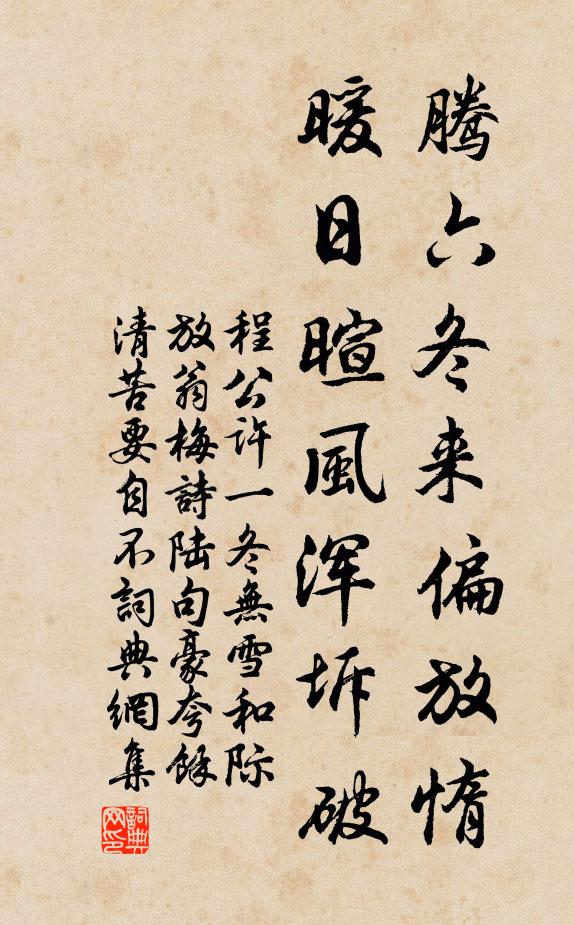 腾六冬来偏放惰
暖日暄風浑坼破
程公许一冬無雪和际
放翁梅詩陆句豪夸餘
清苦要自不詞典網集
詞典网印